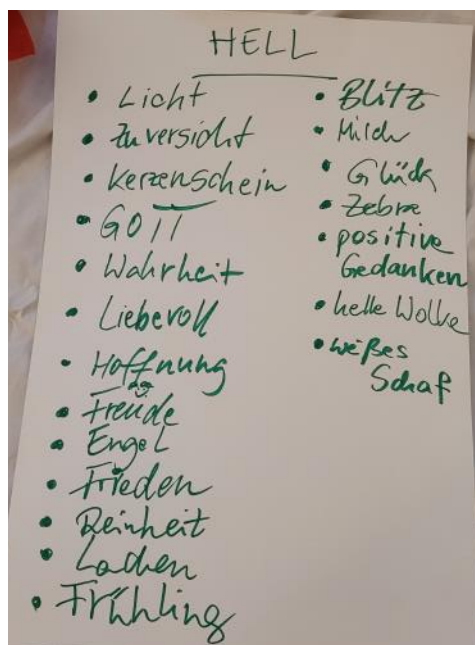 HELL
• Licht
• Zuversicht
• Kerzenschein
• GOTT
• Wahrheit
• Liebevoll
• Hoffnung
• Freude
• Engel
• Frieden
• Reinheit
• Lachen
• Frühling
• Blitz
• Milch
• Glück
• Zebra
• positive
Gedanken
• helle Wolke
• weißes
Schaf